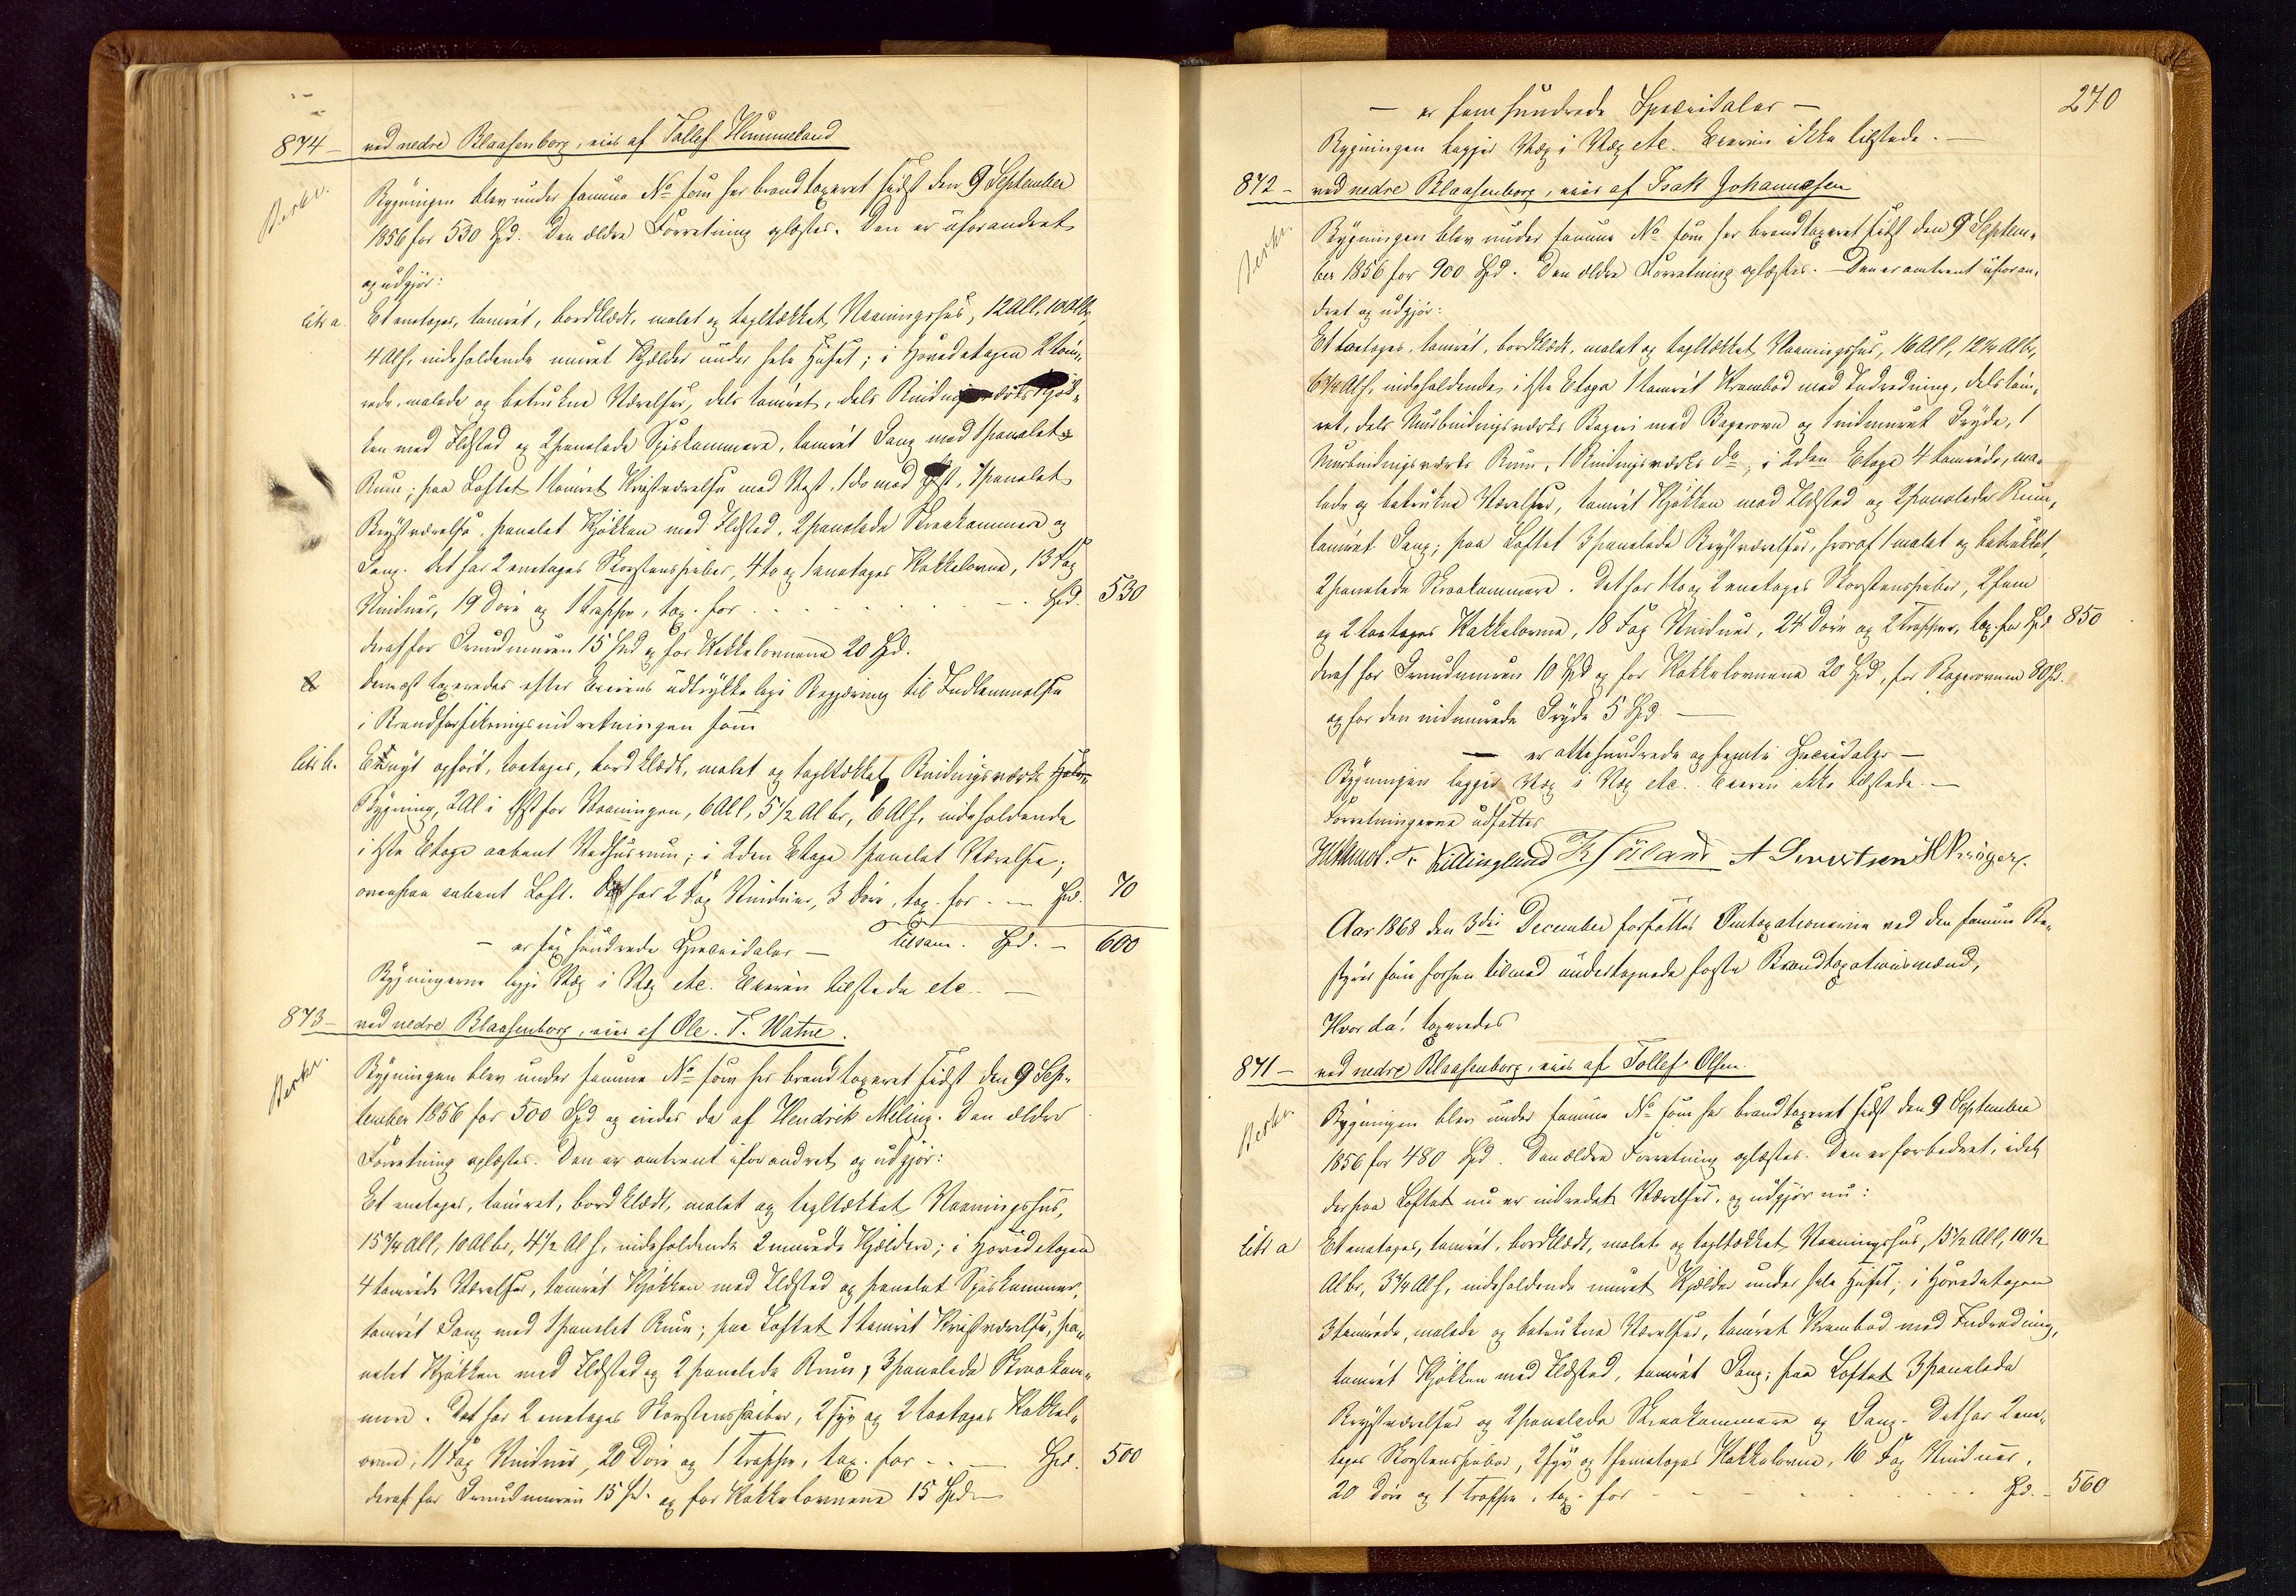 874 – ved nedre Blaasenborg, eies af Tollef Hemmeland
Beskr. Bygningen blev under samme No som her brandtaxeret sidst den 9 September
1856 for 530 Spd. Den ældre Forretning oplæstes. Den er uforandret
og udgjør:
Litr a. Et enetages, tømret, bordklædt, malet og tagltækket Vaaningshus, 12 Al l, 10 Al br,
4 Al h, indeholdende muret Kjelder under hele Huset; i Hovedetagen 2 tøm„
rede, malede og betrukne Værelser, dels tømret, dels Bindingsværks Kjøk„
ken med Ildsted og 2 panelede Spiskammere, tømret Gang med 1 panelet
Rum; paa Loftet 1 tømret Kvistværelse mod Vest, 1 do mod Øst, 1 panelet
Kvistværelse, panelet Kjøkken med Ildsted, 2 panelede Skraakammere og
Gang. Det har 2 enetages Skorstenspiber, 4 to og 1 enetages Kakkelovne, 13 Fag
Vinduer, 19 Døre og 1 Trappe, tax. for . . . Spd. 530
deraf for Grundmuren 15 Spd og for Kakkelovnene 20 Spd.
dernæst taxeredes efter Eierens udtrykkelige Begjæring til Indlemmelse
i Brandforsikringsindretningen som
Litr b. Et nyt opført, toetages, bordklædt, malet og tagltækket Bindingsværks
Bygning, 2 Al i Øst for Vaaningen, 6 Al l, 5 1/2 Al br, 6 Al h, indeholdende
i 1ste Etage aabent Vedhusrum; i 2den Etage 1 panelet Værelse;
ovenpaa aabent Loft. Det har 2 Fag Vinduer, 3 Døre, tax. for . – Spd. 70
– er sex hundrede Speciedaler – tilsam. Spd. – 600
Bygningerne ligge Væg i Væg etc. Eieren tilstede etc –
873 – ved nedre Blaasenborg, eies af Ole T. Watne.
Beskr. Bygningen blev under samme No som her brandtaxeret sidst den 9 Sep„
tember 1856 for 500 Spd og eiedes da af Hendrik Meling. Den ældre
Forretning oplæstes. Den er omtrent uforandret og udgjør:
Et enetages, tømret, bordklædt, malet og tagltækket Vaaningshus,
15 3/4 Al l, 10 Al br, 4 1/2 Al h, indeholdende 2 murede Kjældere; i Hovedetagen
4 tømrede Værelser, tømret Kjøkken med Ildsted og panelet Spiskammer,
tømret Gang med 1 panelet Rum; paa Loftet 1 tømret Kvistværelse, pa„
nelet Kjøkken med Ildsted og 2 panelede Rum, 3 panelede Skraakam„
mere. Det har 2 enetages Skorstenspiber, 2 fyr og 2 toetages Kakkel„
ovne, 11 Fag Vinduer, 20 Døre og 1 Trappe, tax. for . . Spd. 500
deraf for Grundmuren 15 Spd. og for Kakkelovnene 15 Spd –
270
– er fem hundrede Speciedaler –
Bygningen ligger Væg i Væg etc. Eieren ikke tilstede. –
872 – ved nedre Blaasenborg, eies af Isak Johannesen
Beskr. Bygningen blev under samme No som her brandtaxeret sidst den 9 Septem„
ber 1856 for 900 Spd. Den ældre Forretning oplæstes. – Den er omtrent uforan„
dret og udgjør:
Et toetages, tømret, bordklædt, malet og tagltækket Vaaningshus, 16 Al l, 12 1/4 Al br,
6 3/4 Al h, indeholdende i 1ste Etage 1 tømret Krambod med Indredning, dels tøm„
ret, dels Murbindingsværks Bageri med Bagerovn og 1 indmuret Gryde, 1
Murbindingsværks Rum, 1 Bindingsværks do; i 2den Etage 4 tømrede, ma„
lede og betrukne Værelser, tømret Kjøkken med Ildsted og 2 panelede Rum,
tømret Gang; paa Loftet 3 panelede Kvistværelser, hvoraf 1 malet og betrukket,
2 panelede Skraakammere. Det har 1 to og 2 enetages Skorstenspiber, 2 fem
og 2 toetages Kakkelovne, 18 Fag Vinduer, 24 Døre og 2 Trapper, tax. for Spd 850
deraf for Grundmuren 10 Spd og for Kakkelovnene 20 Spd, for Bagerovnen 80 Spd.
og for den indmurede Gryde 5 Spd. –
– er ottehundrede og femti Speciedaler –
Bygningen ligger Væg i Væg etc. Eieren ikke tilstede. –
Forretningerne udsattes
Killingland A Sivertsen H Krüger.
Aar 1868 den 3die December fortsattes Omtaxationerne ved den samme Be„
styrer som forhen tilmed undertegnede faste Brandtaxationsmænd,
Hvor da! taxeredes
871 – ved nedre Blaasenborg, eies af Tollef Olsen.
Beskr. Bygningen blev under samme No som her brandtaxeret sidst den 9 September
1856 for 480 Spd. Den ældre Forretning oplæstes. Den er forbedret, idet
der paa Loftet nu er indredet Værelser, og udgjør nu:
Litr a Et enetages, tømret, bordklædt, malet og tagltækket Vaaningshus, 15 1/2 Al l, 10 1/2
Al br, 3 3/4 Al h, indeholdende muret Kjelder under hele Huset; i Hovedetagen
3 tømrede, malede og betrukne Værelser, tømret Krambod med Indredning,
tømret Kjøkken med Ildsted, tømret Gang; paa Loftet 3 panelede
Kvistværelser og 2 panelede Skraakammere og Gang. Det har 2 ene„
tages Skorstenspiber, 2 fyr og 1 femetages Kakkelovne, 16 Fag Vinduer,
20 Døre og 1 Trappe, tax. for – – . . . Spd. – 560